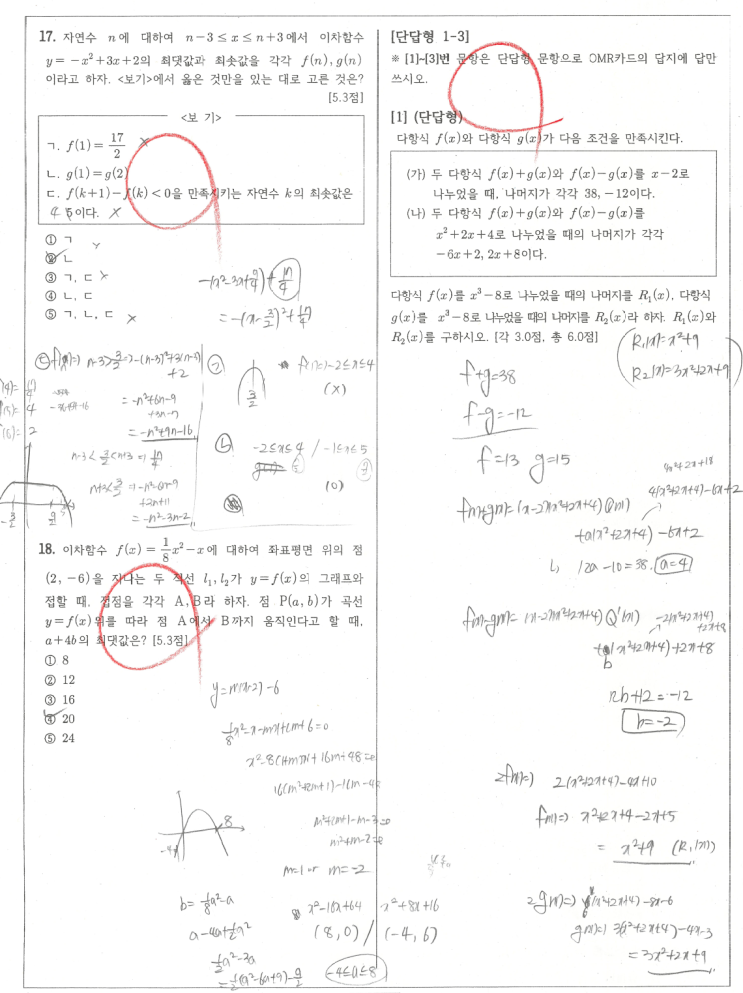 17. 자연수 n에 대하여 n-3≤x≤n+3에서 이차함수
y=-x²+3x+2의 최댓값과 최솟값을 각각 f(n), g(n)
이라고 하자. <보기>에서 옳은 것만을 있는 대로 고른 것은?
[5.3점]
<보 기>
ㄱ. f(1)=17/2 x
ㄴ. g(1)=g(2)
ㄷ. f(k+1)-f(k)<0을 만족시키는 자연수 k의 최솟값은
이다. x
① ㄱ
② ㄴ
③ ㄱ, ㄷ x
④ ㄴ, ㄷ
⑤ ㄱ, ㄴ, ㄷ x
=-(x-3/2)²+17/4
ㄱ f(1)=)-2≤x≤4
(x)
3/2
=-n²+6n-9
+3n-7
=-n²+9n-16
ㄴ -2≤x≤4 / -1≤x≤5
(0)
n-3<3/2<n+3 => 17/4
=-n²-3n-2
18. 이차함수 f(x)=1/8x²-x에 대하여 좌표평면 위의 점
(2, -6)을 지나는 두 직선 l₁, l₂가 y=f(x)의 그래프와
접할 때, 접점을 각각 A, B라 하자. 점 P(a, b)가 곡선
y=f(x)위를 따라 점 A에서 B까지 움직인다고 할 때,
a+4b의 최댓값은? [5.3점]
① 8
② 12
③ 16
④ 20
⑤ 24
y=m(x-2)-6
1/8x²-x-mx+2m+6=0
x²-8(1+m)x+16m+48=0
m²+2m+1-m-3=0
m²+m-2=0
m=1 or m=-2
8
-4
b=1/8a²-a
a-4a+1/2a²
1/2a²-3a
=1/2(a²-6a+9)-9/2
x²-16x+64
x²+8x+16
(8, 0) / (-4, 6)
-4≤a≤8
[단답형 1-3]
※ [1]~[3]번 문항은 단답형 문항으로 OMR카드의 답지에 답만
쓰시오.
[1] (단답형)
다항식 f(x)와 다항식 g(x)가 다음 조건을 만족시킨다.
(가) 두 다항식 f(x)+g(x)와 f(x)-g(x)를 x-2로
나누었을 때, 나머지가 각각 38, -12이다.
(나) 두 다항식 f(x)+g(x)와 f(x)-g(x)를
x²+2x+4로 나누었을 때의 나머지가 각각
-6x+2, 2x+8이다.
다항식 f(x)를 x³-8로 나누었을 때의 나머지를 R₁(x), 다항식
g(x)를 x³-8로 나누었을 때의 나머지를 R₂(x)라 하자. R₁(x)와
R₂(x)를 구하시오. [각 3.0점, 총 6.0점]
R₁(x)=x²+9
R₂(x)=3x²+2x+9
f+g=38
f-g=-12
f=13 g=15
4x²+2x+18
4(x²+2x+4)-6x+2
f(x)+g(x)=(x-2)(x²+2x+4)Q(x)
+a(x²+2x+4)-6x+2
12a-10=38. a=4
f(x)-g(x)=(x-2)(x²+2x+4)Q'(x)
-2(x²+2x+4)
+2x+8
+b(x²+2x+4)+2x+8
12b+12=-12
b=-2
2f(x)=) 2(x²+2x+4)-4x+10
f(x)=) x²+2x+4-2x+5
= x²+9 (R₁(x))
2g(x)=) 6(x²+2x+4)-8x-6
g(x)=) 3(x²+2x+4)-4x-3
=3x²+2x+9